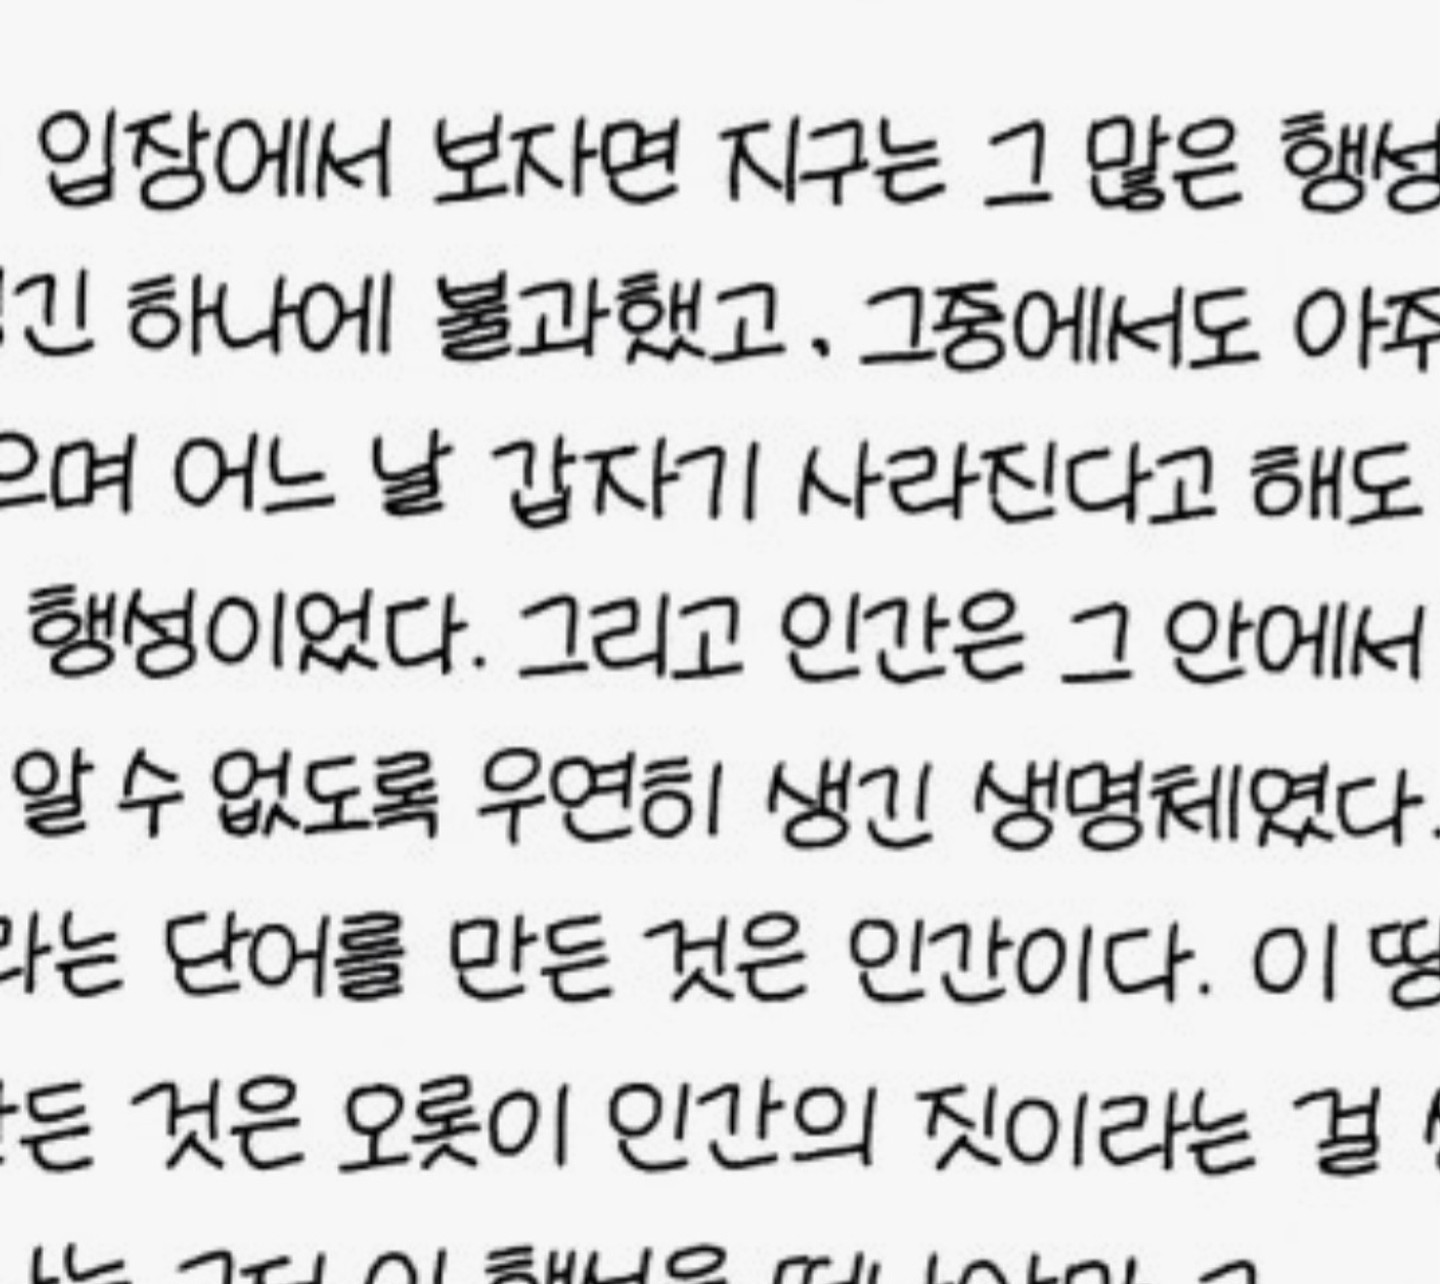 입장에서 보자면 지구는 그 많은
하나에 불과했고. 그중에서도
어느 날 갑자기 사라진다고 해도
행성이었다. 그리고 인간은 그 안에서
알 수 없도록 우연히 생긴 생명체였다.
단어를 만든 것은 인간이다. 이
것은 오롯이 인간의 짓이라는 걸